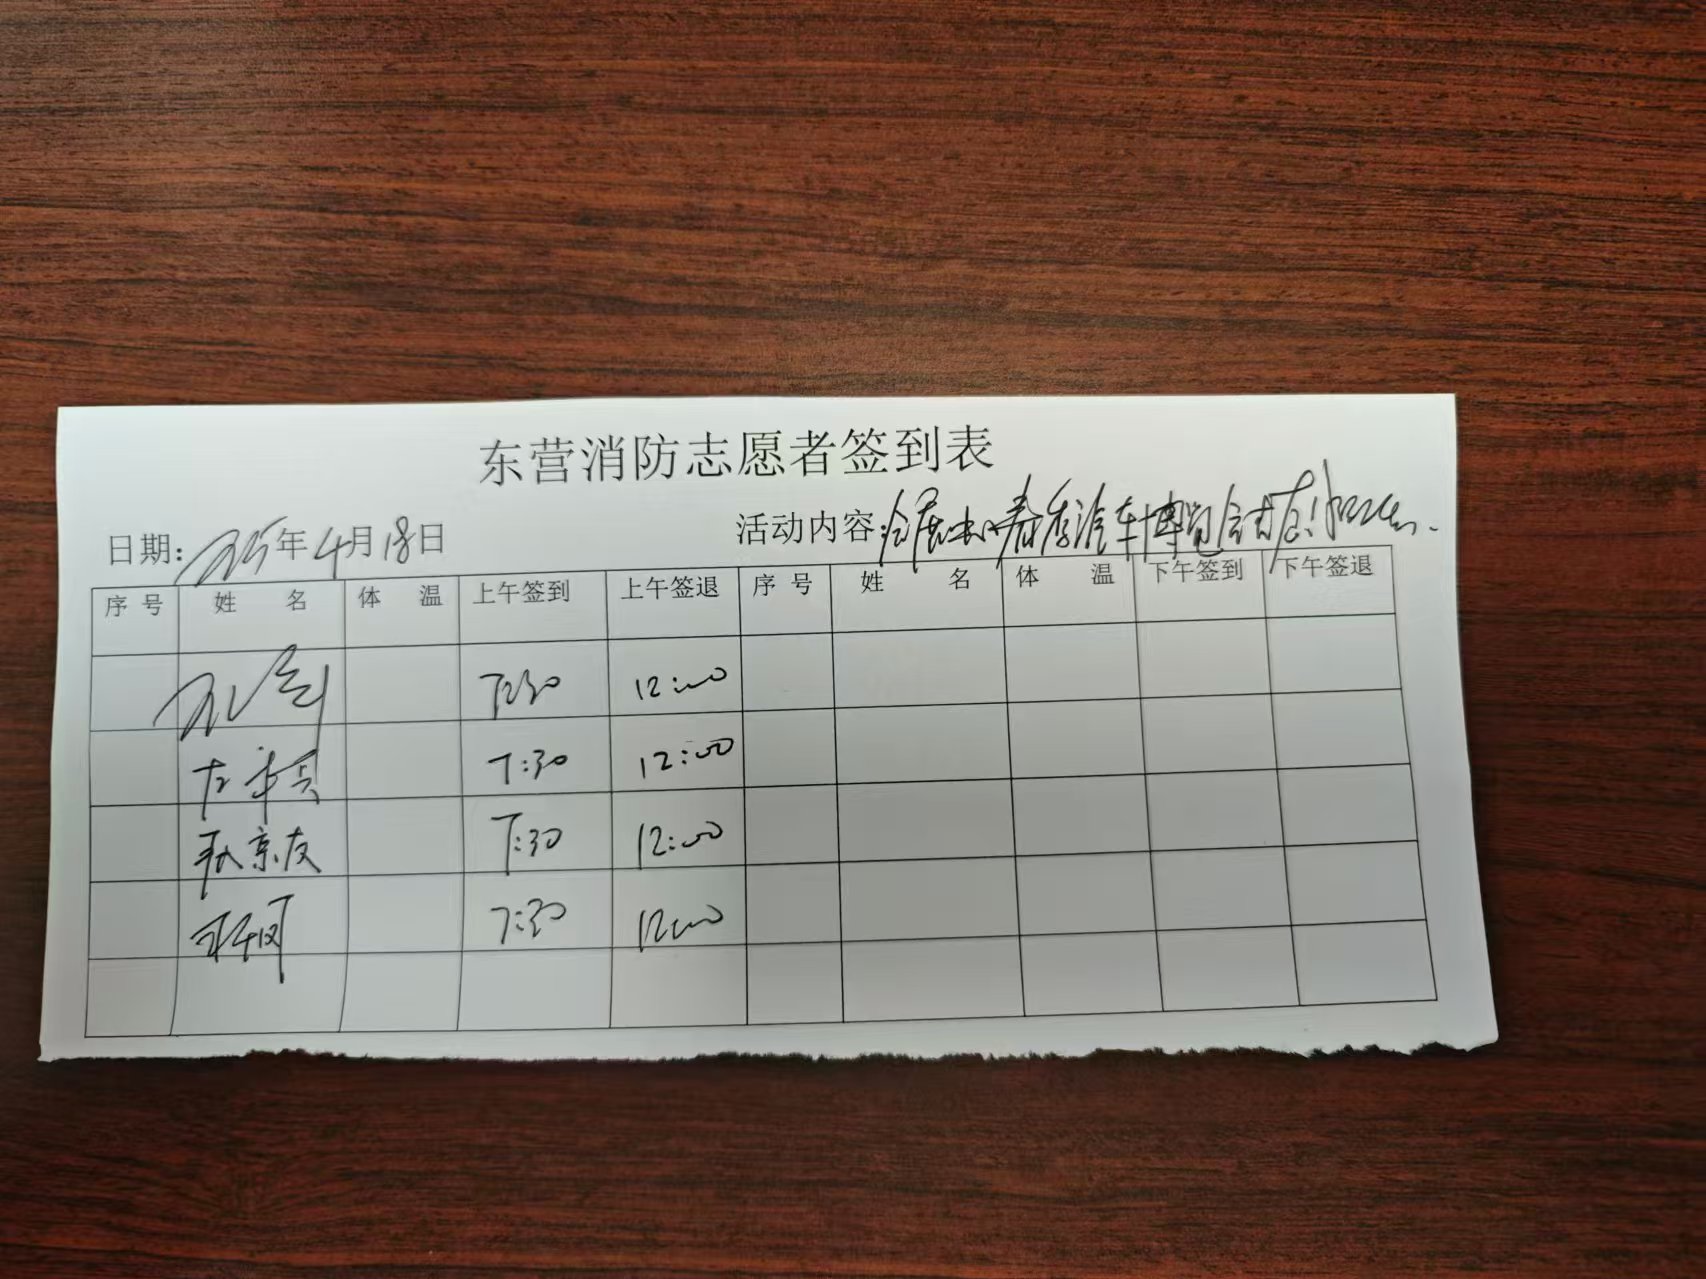 东营消防志愿者签到表
日期: 2025年4月18日 活动内容: 会展中心春季汽车博览会
序号 姓名 体温 上午签到 上午签退 序号 姓名 体温 下午签到 下午签退
7:30 12:00
7:30 12:00
孙京友 7:30 12:00
7:30 12:00